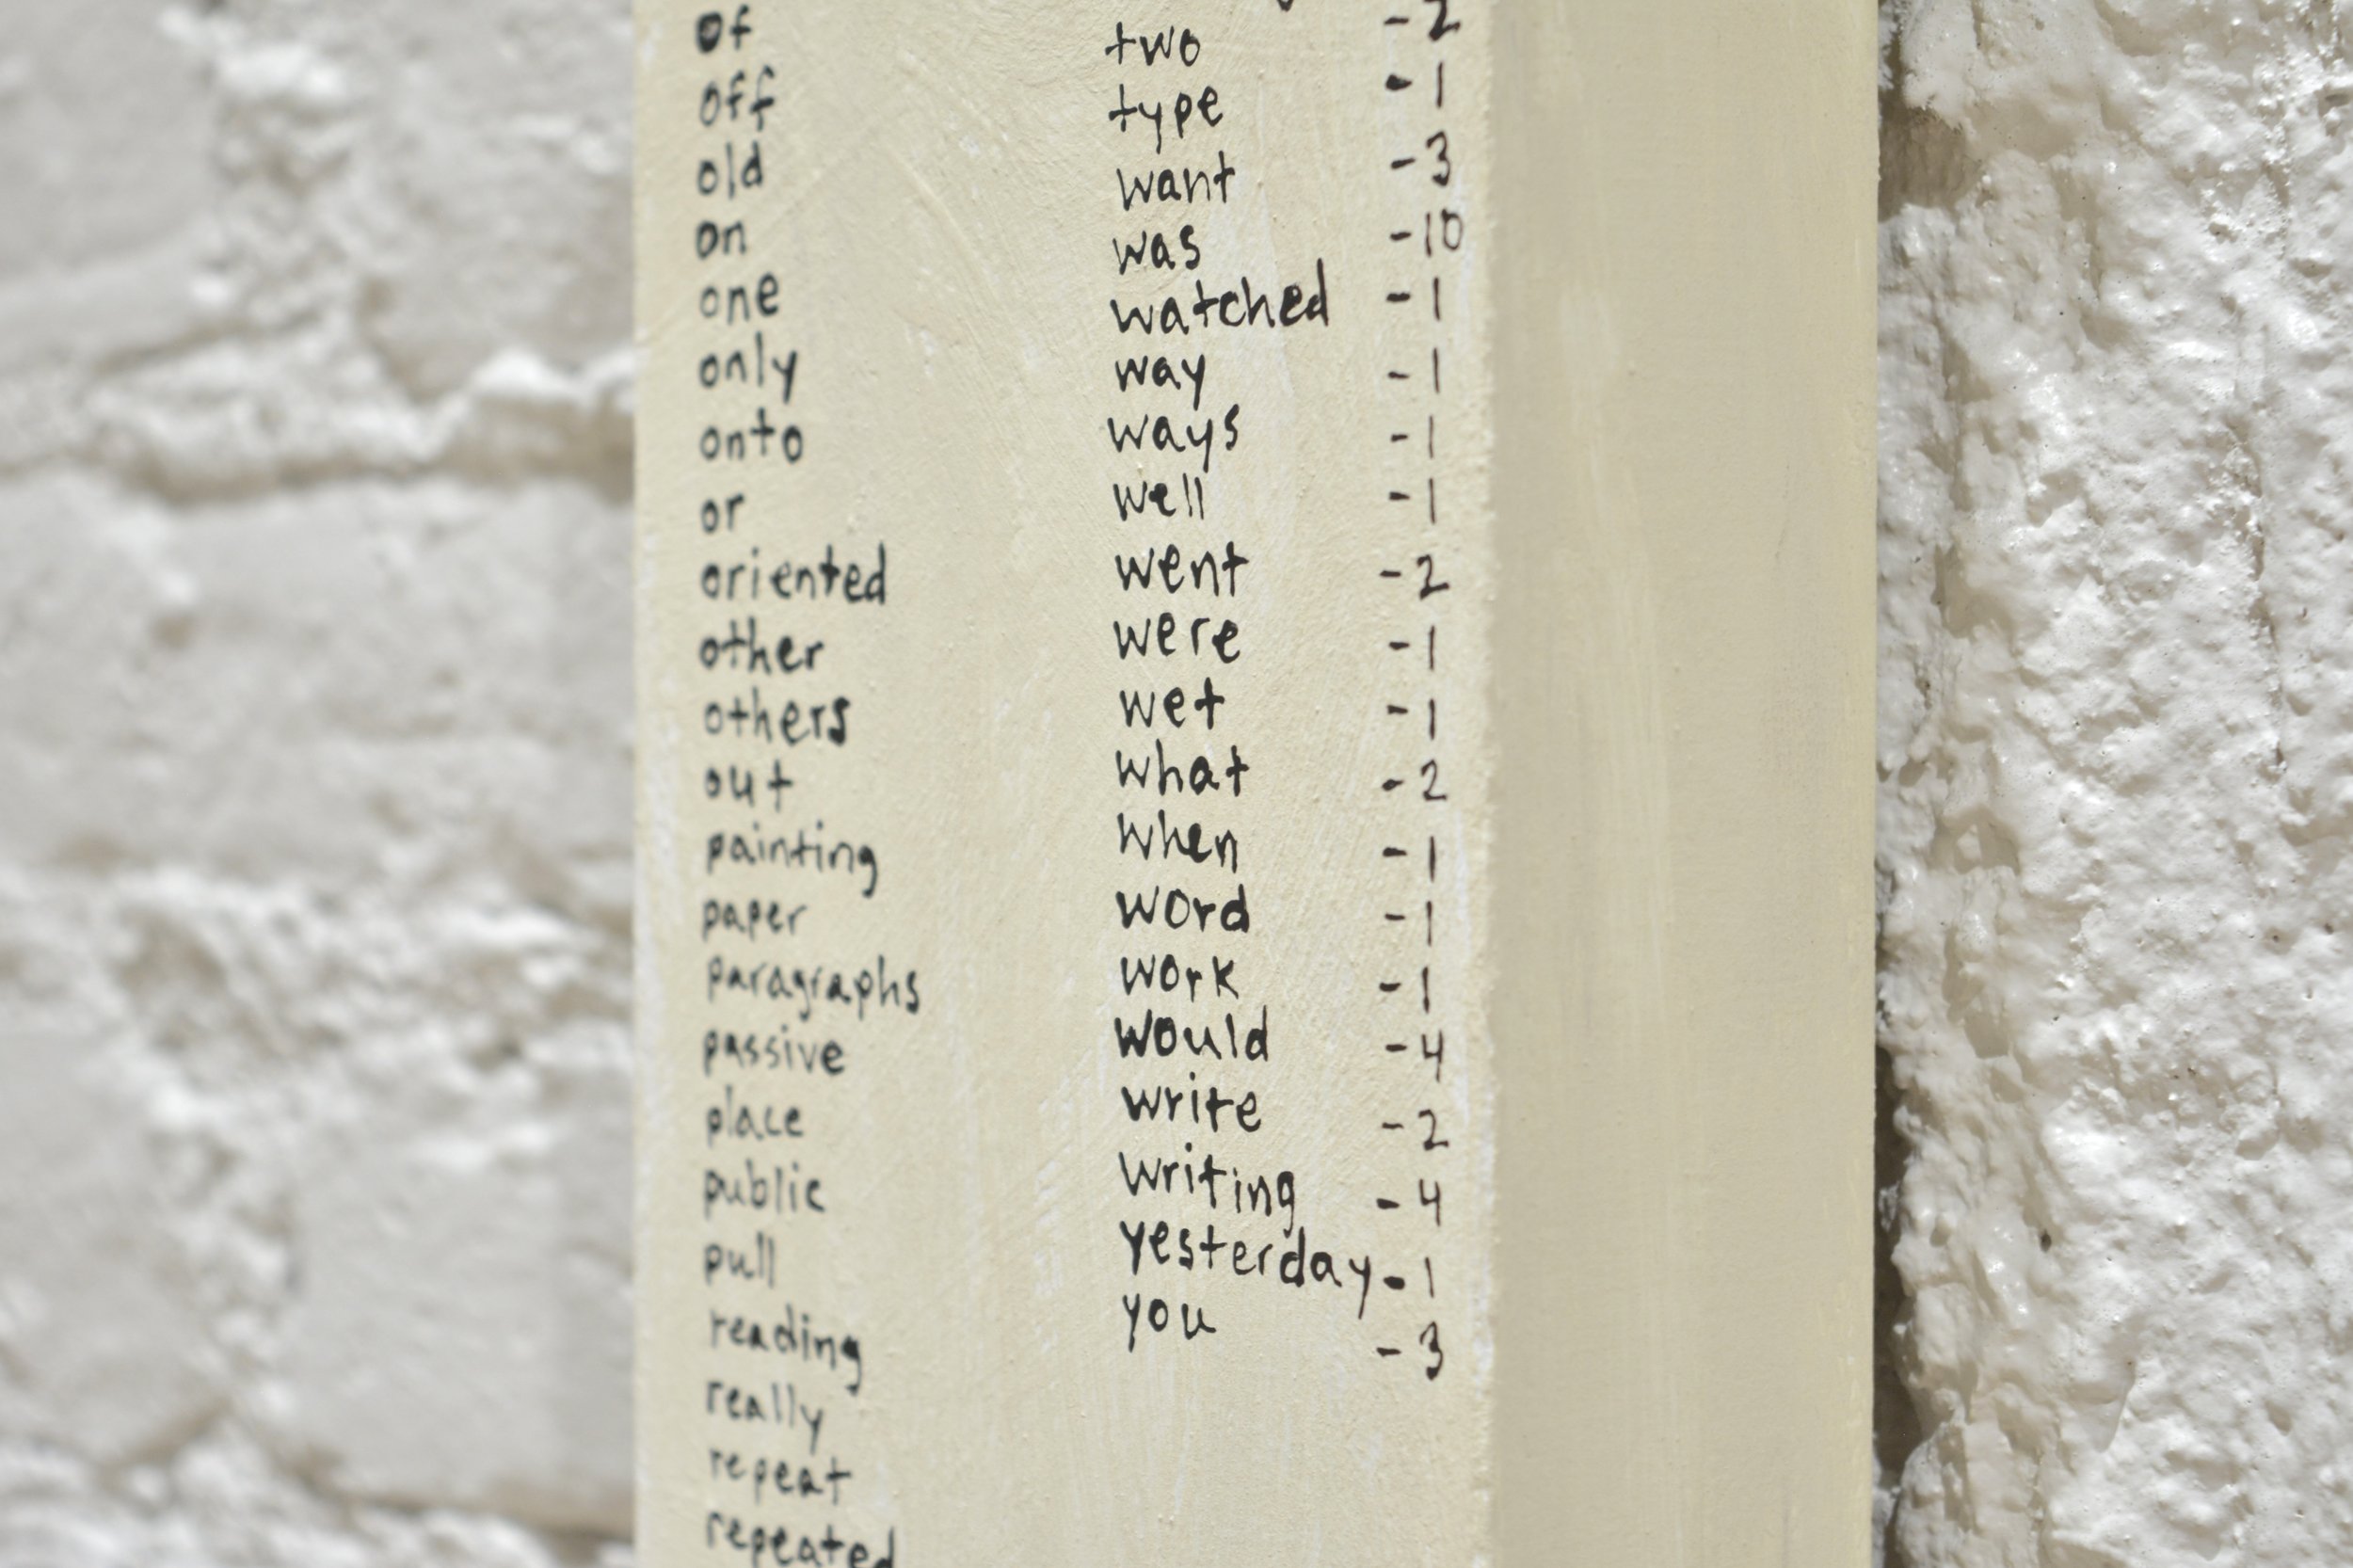 of
off
old
on
one
only
onto
or
oriented
other
others
out
painting
paper
paragraphs
passive
place
public
pull
reading
really
repeat
repeated
two -2
type -1
want -3
was -10
watched -1
way -1
ways -1
well -1
went -2
were -1
wet -1
what -2
when -1
word -1
work -1
would -4
write -2
writing -4
yesterday -1
you -3